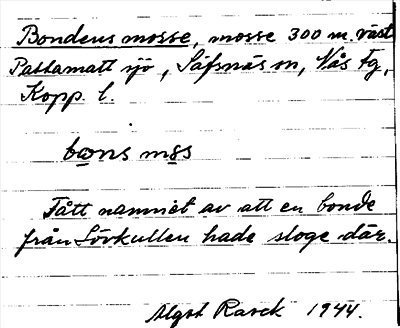 Bondens mosse, mosse 300 m. väst
Pattamatt sjö, Säfsnäs sn, Nås Fg,
Kopp. l.
bons mos
Fått namnet av att en bonde
från Lövkullen hade sloge där.
Algot Rasck 1944.